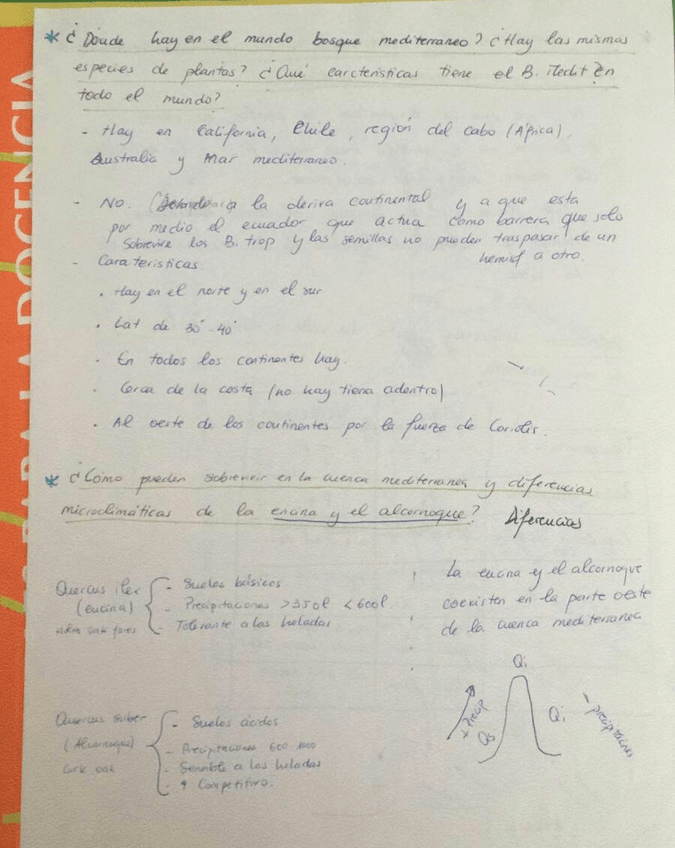 * ¿Dónde hay en el mundo bosque mediterraneo? ¿Hay las mismas
especies de plantas? ¿Qué carcteristicas tiene el B. Medit en
todo el mundo?
- Hay en California, Chile, región del Cabo (África),
Australia y Mar mediterraneo.
- No. a la deriva continental y a que esta
por medio el ecuador que actua como barrera que solo
sobrevive los B. trop y las semillas no pueden traspasar de un
hemisf a otro.
- Carateristicas
• Hay en el norte y en el sur
• Lat de 30°-40°
- En todos los continentes hay.
• Cerca de la costa (no hay tierra adentro)
• Al oeste de los continentes por la fuerza de Coriolis.
* ¿Cómo pueden sobrevivir en la cuenca mediterranea y diferencias
microclimáticas de la encina y el alcornoque? Diferencias
Quercus ilex
(encina)
- Suelos básicos
- Precipitaciones >350l <600l
- Tolerante a las heladas
La encina y el alcornoque
coexisten en la parte oeste
de la cuenca mediterranea
Quercus suber
(Alcornoque)
Cork oak
- Suelos ácidos
- Precipitaciones 600 1000
- Sensible a las heladas
- ↑ Competitivo.
Qi
+ Precip
Qs
Qi
- precipitaciones
RABAJA DOCENCIA